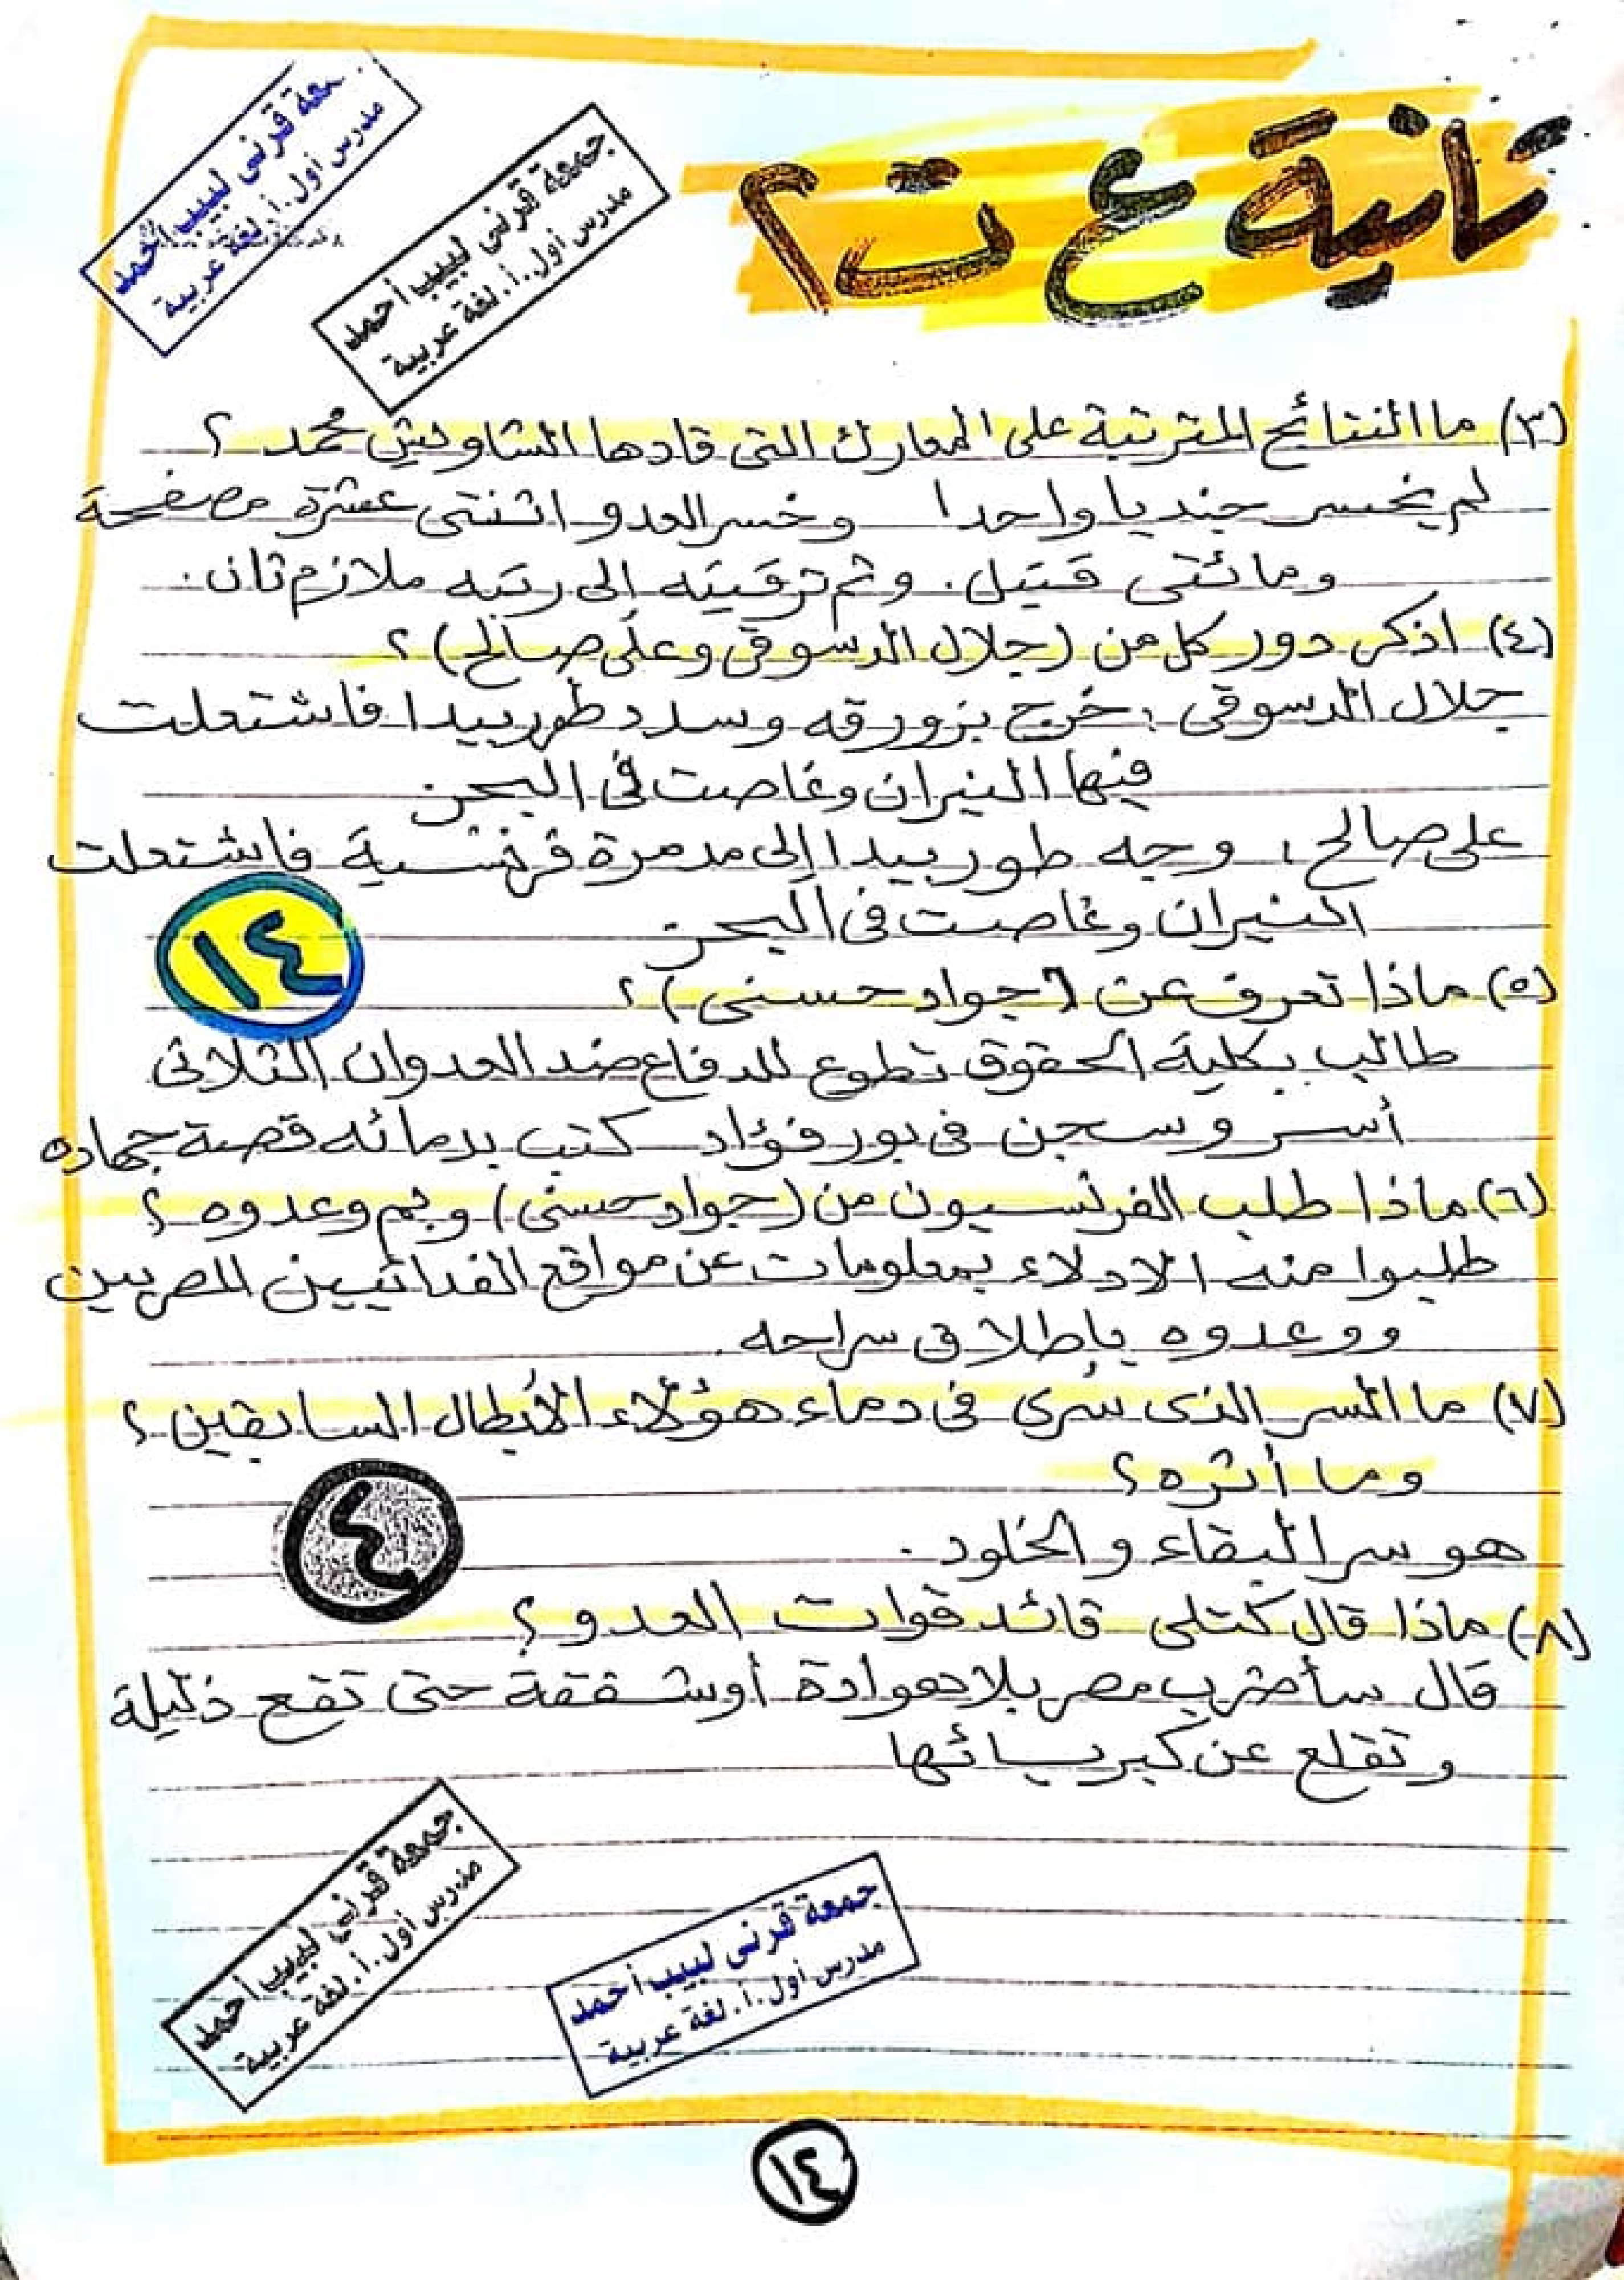 تانية ع ت٢
جمعة قرني لبيب أحمد
مدرس أول.أ. لغة عربية
جمعة قرني لبيب أحمد
مدرس أول.أ. لغة عربية
(٣) ما النتائج المترتبة على المعارك التى قادها الشاويش محمد ؟
لم يخسر جنديا واحدا وخسر العدو اثنتى عشرة مصفحة
ومائتى قتيل. وتم ترقيته إلى رتبه ملازم ثان.
(٤) اذكر دور كل من (جلال الدسوقى وعلى صالح) ؟
جلال الدسوقى : خرج بزورقه وسدد طوربيدا فاشتعلت
فيها النيران وغاصت فى البحر
على صالح : وجه طوربيدا إلى مدمرة فرنسية فاشتعلت
النيران وغاصت فى البحر
١٤
(٥) ماذا تعرف عن (جواد حسنى) ؟
طالب بكلية الحقوق تطوع للدفاع ضد العدوان الثلاثى
أسر وسجن فى بور فؤاد كتب بدمائه قصة جهاده
(٦) ماذا طلب الفرنسيون من (جواد حسنى) وبم وعدوه ؟
طلبوا منه الادلاء بمعلومات عن مواقع الفدائيين المصريين
ووعدوه بإطلاق سراحه.
(٧) ما السر الذى سرى فى دماء هؤلاء الأبطال السابقين ؟
وما أثره ؟
هو سر البقاء والخلود.
٤
(٨) ماذا قال كتلى قائد قوات العدو ؟
قال سأضرب مصر بلا هوادة أو شفقة حتى تقع ذليلة
وتقلع عن كبريائها
جمعة قرني لبيب أحمد
مدرس أول.أ. لغة عربية
جمعة قرني لبيب أحمد
مدرس أول.أ. لغة عربية
١٤